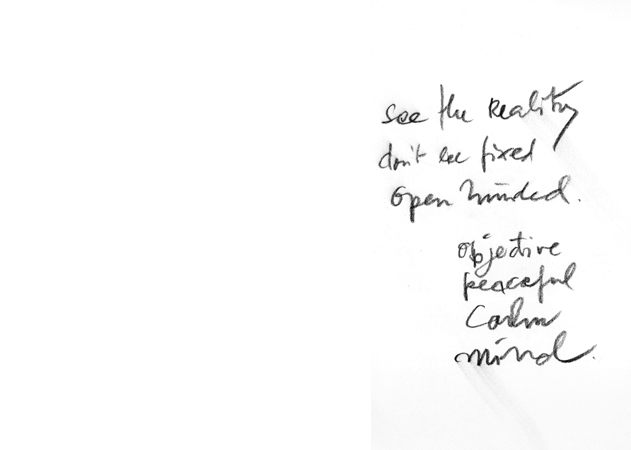 see the Reality
don't be fixed
open minded.
objective
peaceful
Calm
mind.